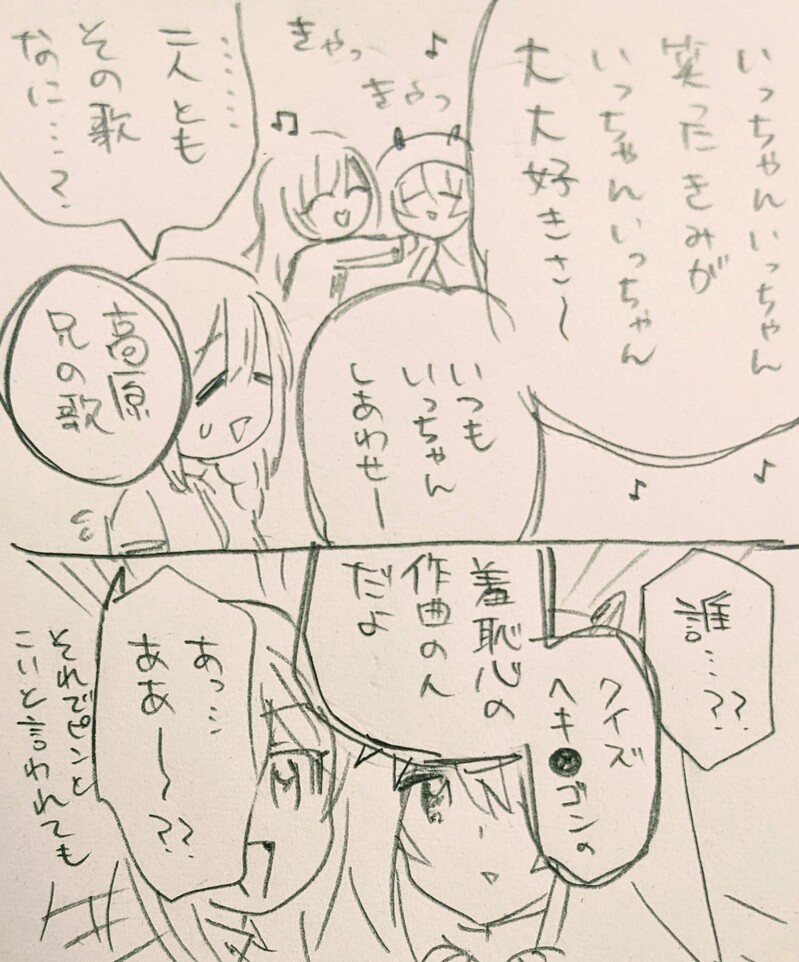 いっちゃんいっちゃん
笑ったきみが
いっちゃんいっちゃん
大大好きさ～
♪
きゃっ
きゃっ
♪
♫
いつも
いっちゃん
しあわせー
♪
♪
……
二人とも
その歌
なに…？
高原
兄の歌
誰…??
クイズ
ヘキ●ゴンの
羞恥心の
作曲のん
だよ
あっ…
ああ～～??
それでピンと
こいと言われても